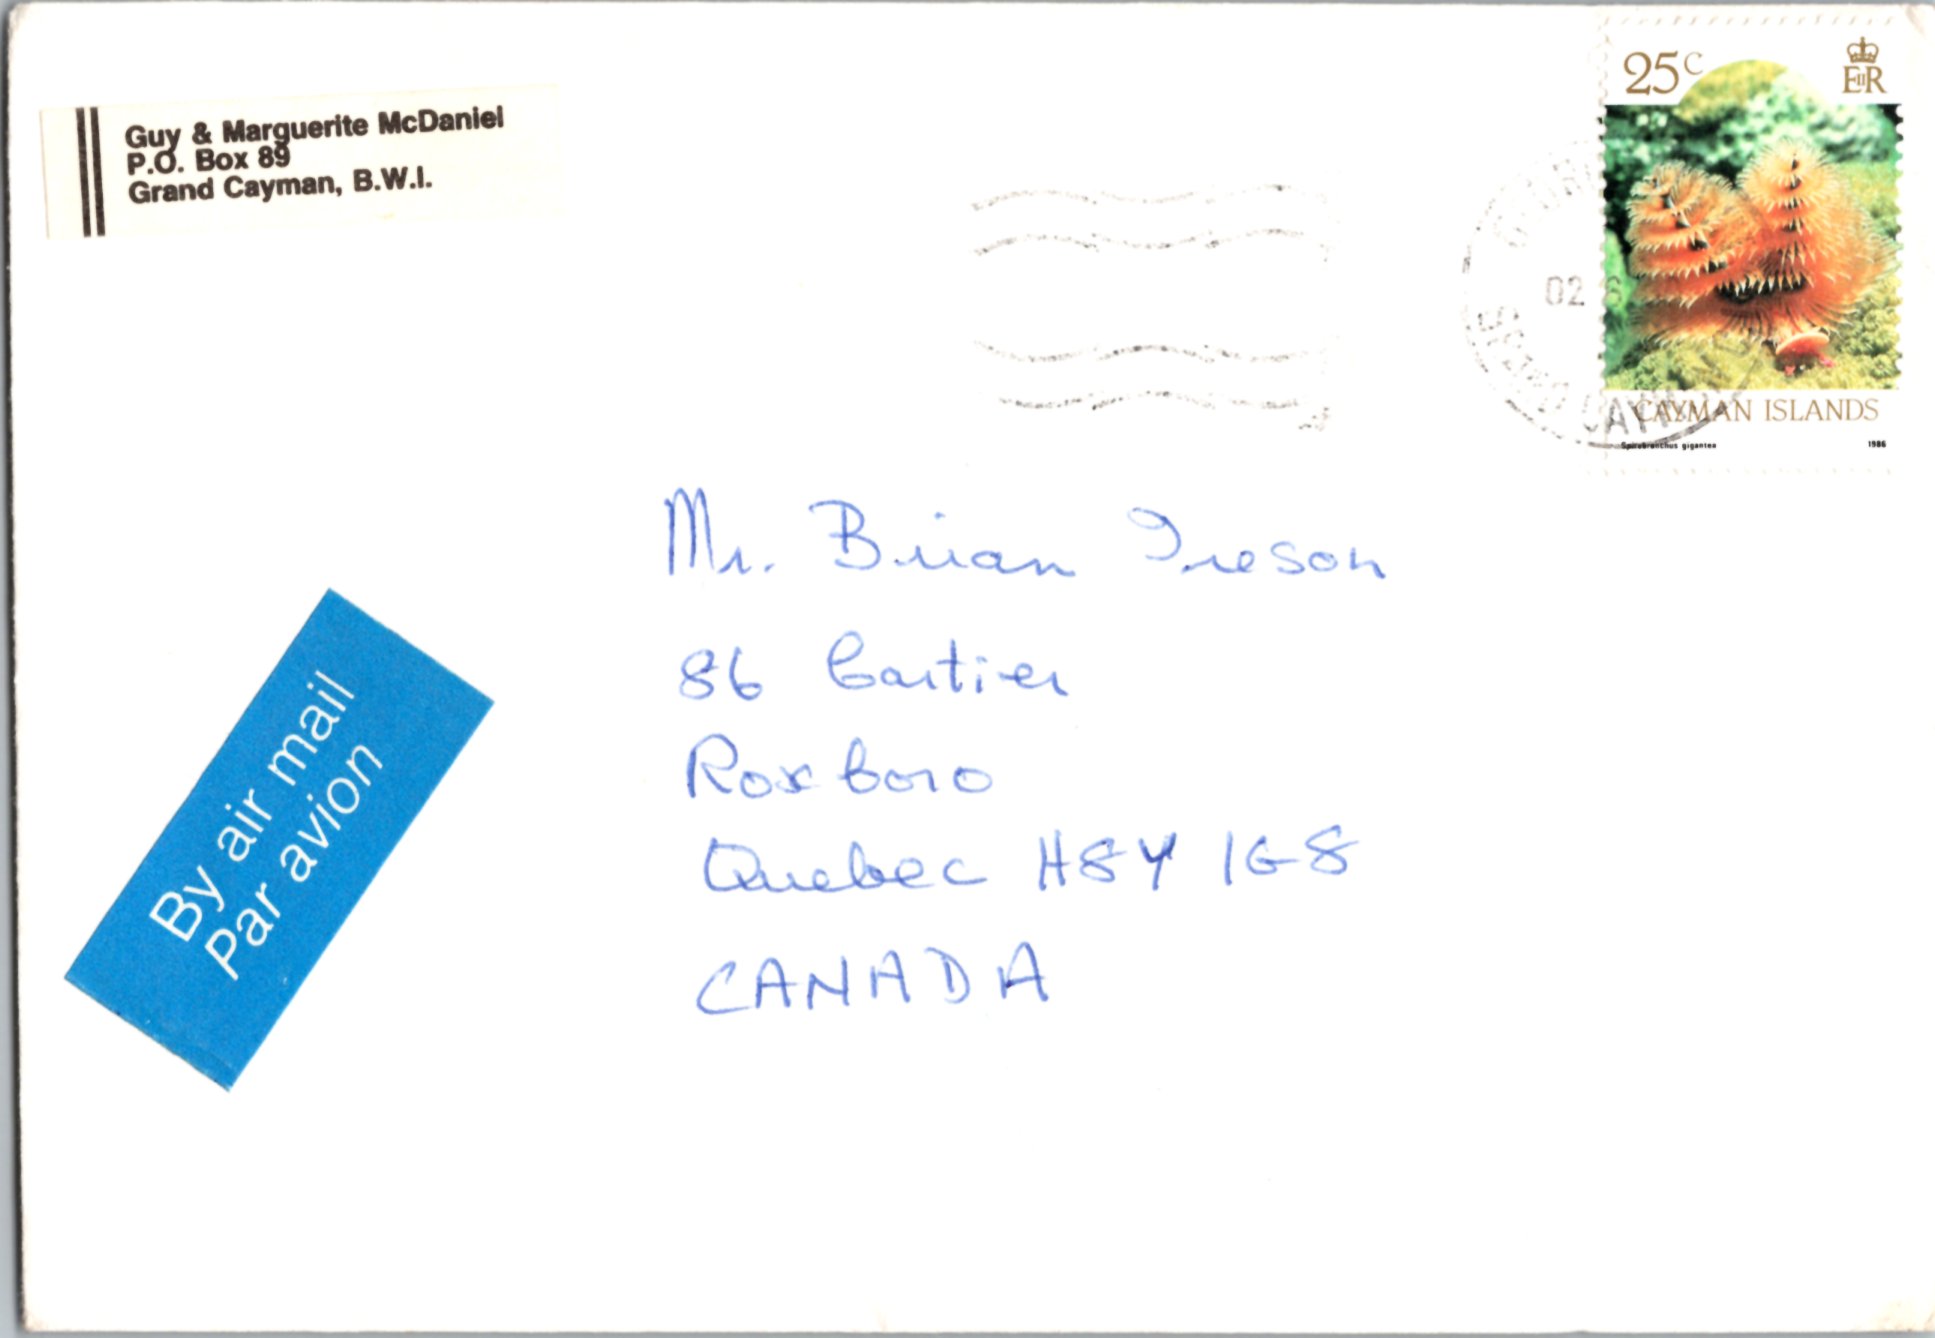 Guy & Marguerite McDaniel
P.O. Box 89
Grand Cayman, B.W.I.
25c
EIIR
02 6
CAYMAN ISLANDS
Spirobranchus gigantea 1986
Mr. Brian Ireson
86 Cartier
Roxboro
Quebec H8Y 1G8
CANADA
By air mail
Par avion